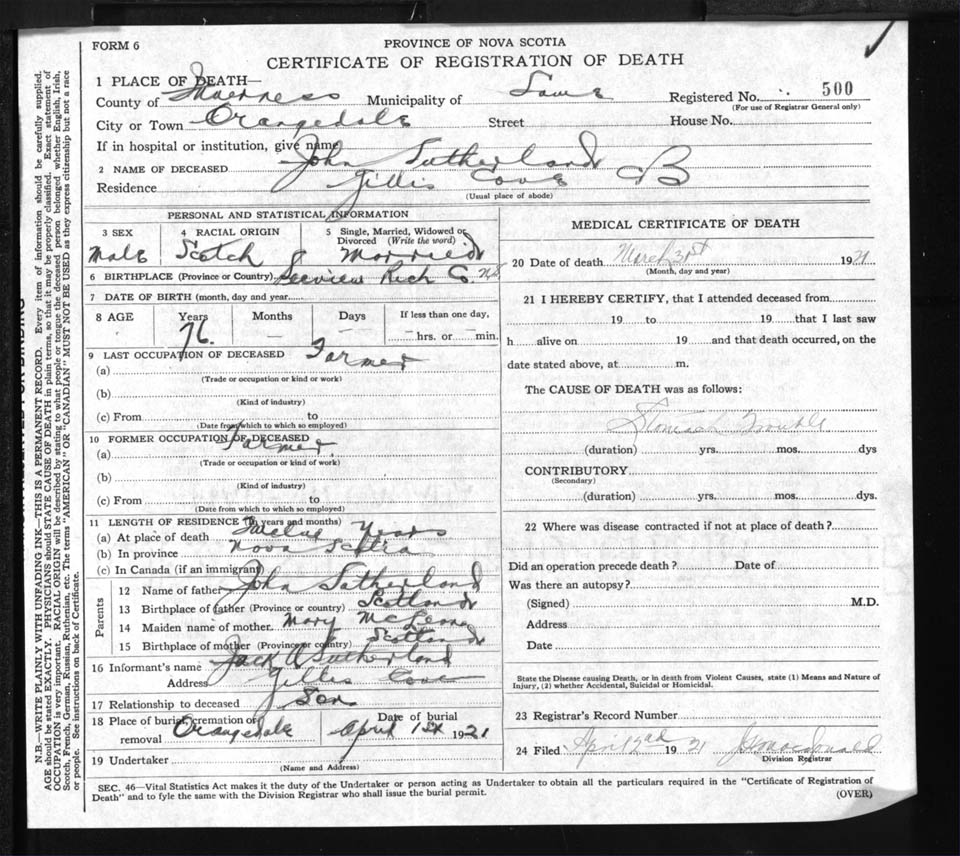 FORM 6
PROVINCE OF NOVA SCOTIA
CERTIFICATE OF REGISTRATION OF DEATH
1 PLACE OF DEATH—
County of Inverness Municipality of Same Registered No. 500
(For use of Registrar General only)
City or Town Orangedale Street House No.
If in hospital or institution, give name
2 NAME OF DECEASED John Sutherland B
Residence Gillis Cove
(Usual place of abode)
PERSONAL AND STATISTICAL INFORMATION
3 SEX Male
4 RACIAL ORIGIN Scotch
5 Single, Married, Widowed or Divorced (Write the word) Married
6 BIRTHPLACE (Province or Country) Rich Co. N.S.
7 DATE OF BIRTH (month, day and year)
8 AGE Years Months Days If less than one day,
76. — — hrs. or min.
9 LAST OCCUPATION OF DECEASED
(a) Farmer
(Trade or occupation or kind or work)
(b)
(Kind of industry)
(c) From to
(Date from which to which so employed)
10 FORMER OCCUPATION OF DECEASED
(a) Farmer
(Trade or occupation or kind of work)
(b)
(Kind of industry)
(c) From to
(Date from which to which so employed)
11 LENGTH OF RESIDENCE (in years and months)
(a) At place of death Twelve Years
(b) In province Nova Scotia
(c) In Canada (if an immigrant)
Parents
12 Name of father John Sutherland
13 Birthplace of father (Province or country) Scotland
14 Maiden name of mother Mary McLeod
15 Birthplace of mother (Province or country) Scotland
16 Informant's name Jack A Sutherland
Address Gillis Cove
17 Relationship to deceased Son
18 Place of burial, cremation or removal Orangedale Date of burial April 1st 1921
19 Undertaker
(Name and Address)
MEDICAL CERTIFICATE OF DEATH
20 Date of death March 31st 1921
(Month, day and year)
21 I HEREBY CERTIFY, that I attended deceased from
19 to 19 that I last saw
h alive on 19 and that death occurred, on the
date stated above, at m.
The CAUSE OF DEATH was as follows:
Stomach Trouble
(duration) yrs. mos. dys
CONTRIBUTORY
(Secondary)
(duration) yrs. mos. dys.
22 Where was disease contracted if not at place of death?
Did an operation precede death? Date of
Was there an autopsy?
(Signed) M.D.
Address
Date
State the Disease causing Death, or in death from Violent Causes, state (1) Means and Nature of
Injury, (2) whether Accidental, Suicidal or Homicidal.
23 Registrar's Record Number
24 Filed April 2nd 1921 Macdonald
Division Registrar
SEC. 46—Vital Statistics Act makes it the duty of the Undertaker or person acting as Undertaker to obtain all the particulars required in the "Certificate of Registration of
Death" and to fyle the same with the Division Registrar who shall issue the burial permit.
(OVER)
N.B.—WRITE PLAINLY WITH UNFADING INK—THIS IS A PERMANENT RECORD. Every item of information should be carefully supplied.
AGE should be stated EXACTLY. PHYSICIANS should STATE CAUSE OF DEATH in plain terms, so that it may be properly classified. Exact statement of
OCCUPATION is very important. RACIAL ORIGIN will be described by stating to what people or tongue the deceased person belonged whether English, Irish,
Scotch, French, German, Russian, Ruthenian, etc. The terms "AMERICAN" OR "CANADIAN" MUST NOT BE USED as they express citizenship but not a race
or people. See instructions on back of Certificate.